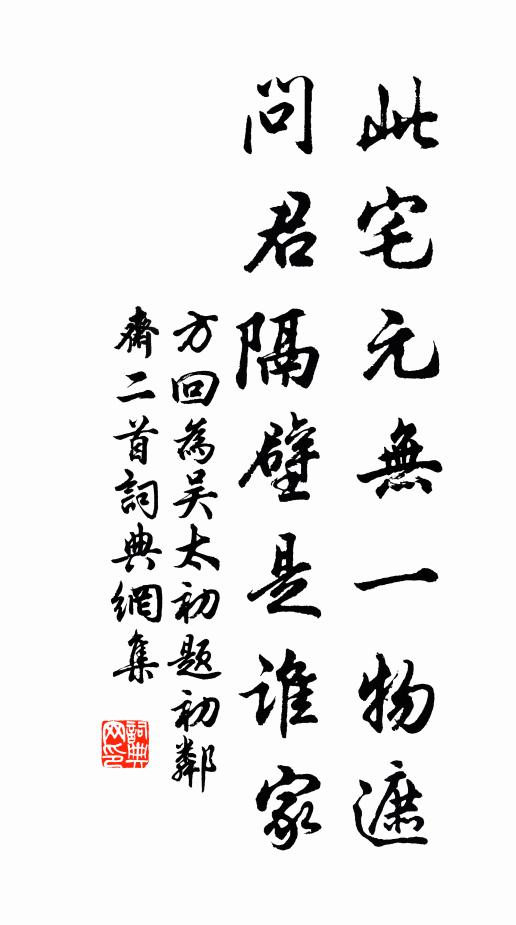 此宅元無一物遮
問君隔壁是谁家
方回為吴太初题初鄰
齋二首詞典網集
詞典
网印